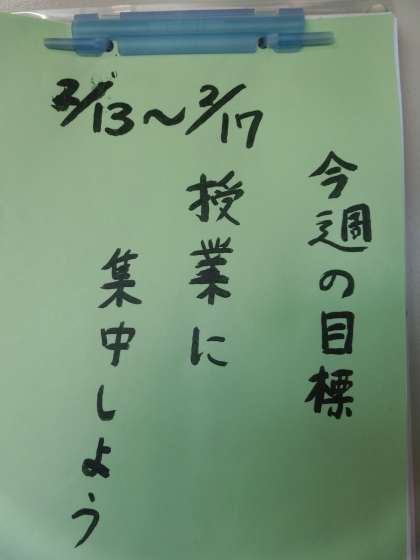 2/13～2/17
今週の目標
授業に
集中しよう